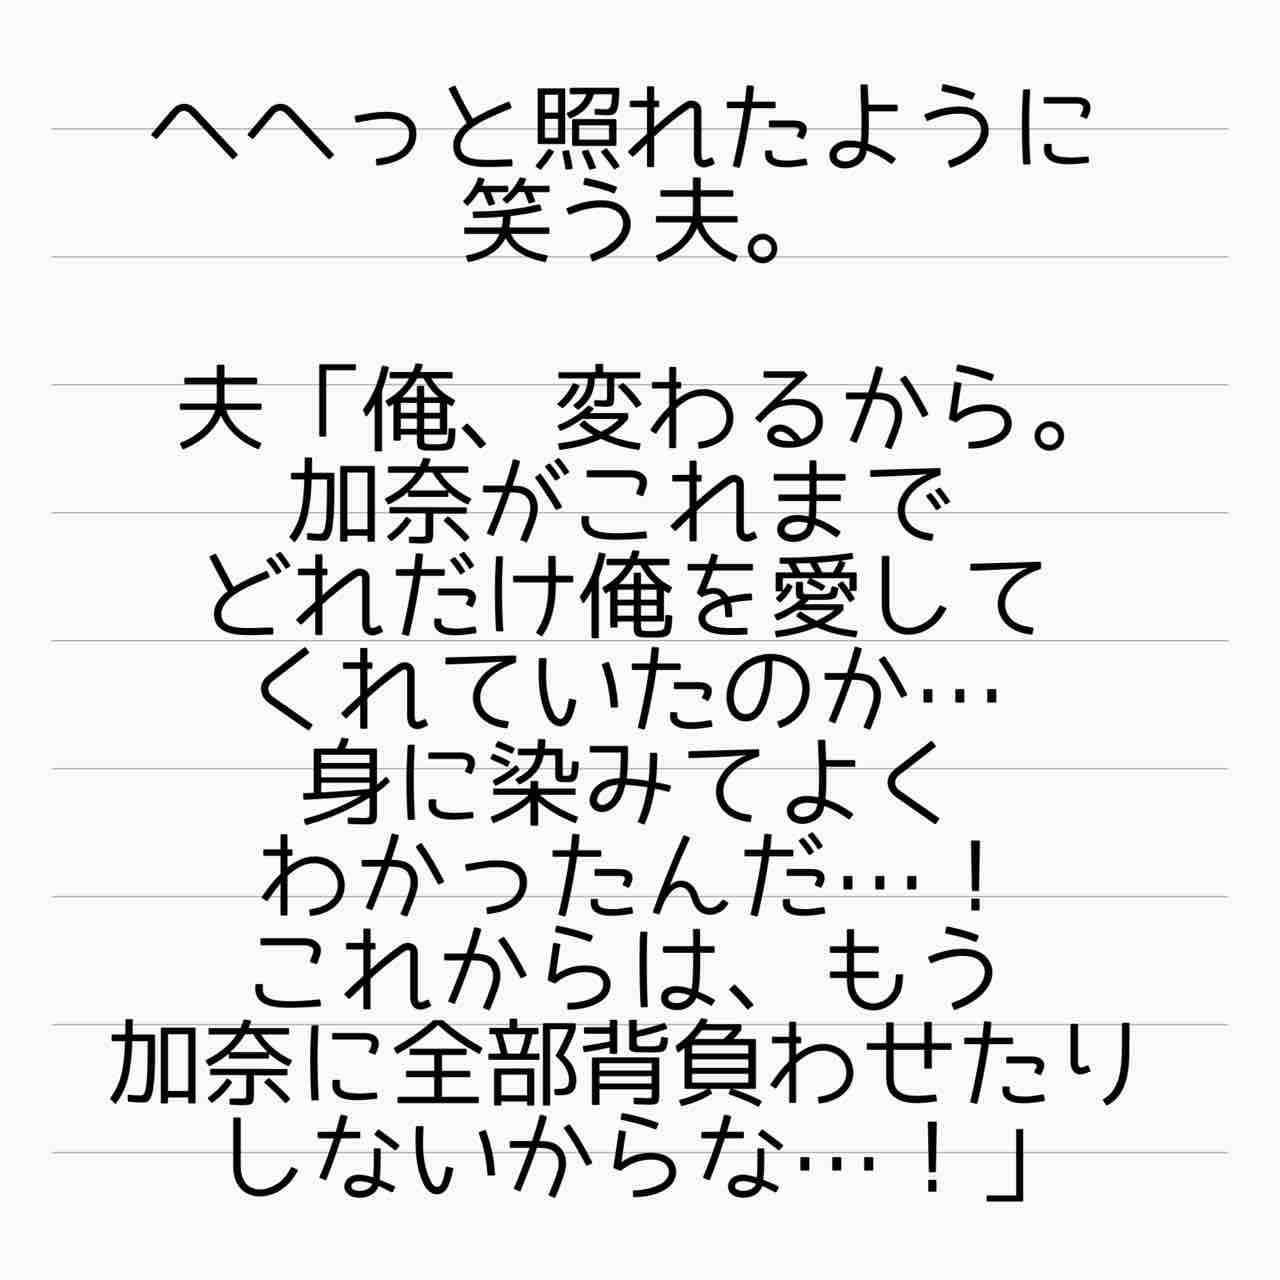 へへっと照れたように
笑う夫。
夫「俺、変わるから。
加奈がこれまで
どれだけ俺を愛して
くれていたのか…
身に染みてよく
わかったんだ…！
これからは、もう
加奈に全部背負わせたり
しないからな…！」